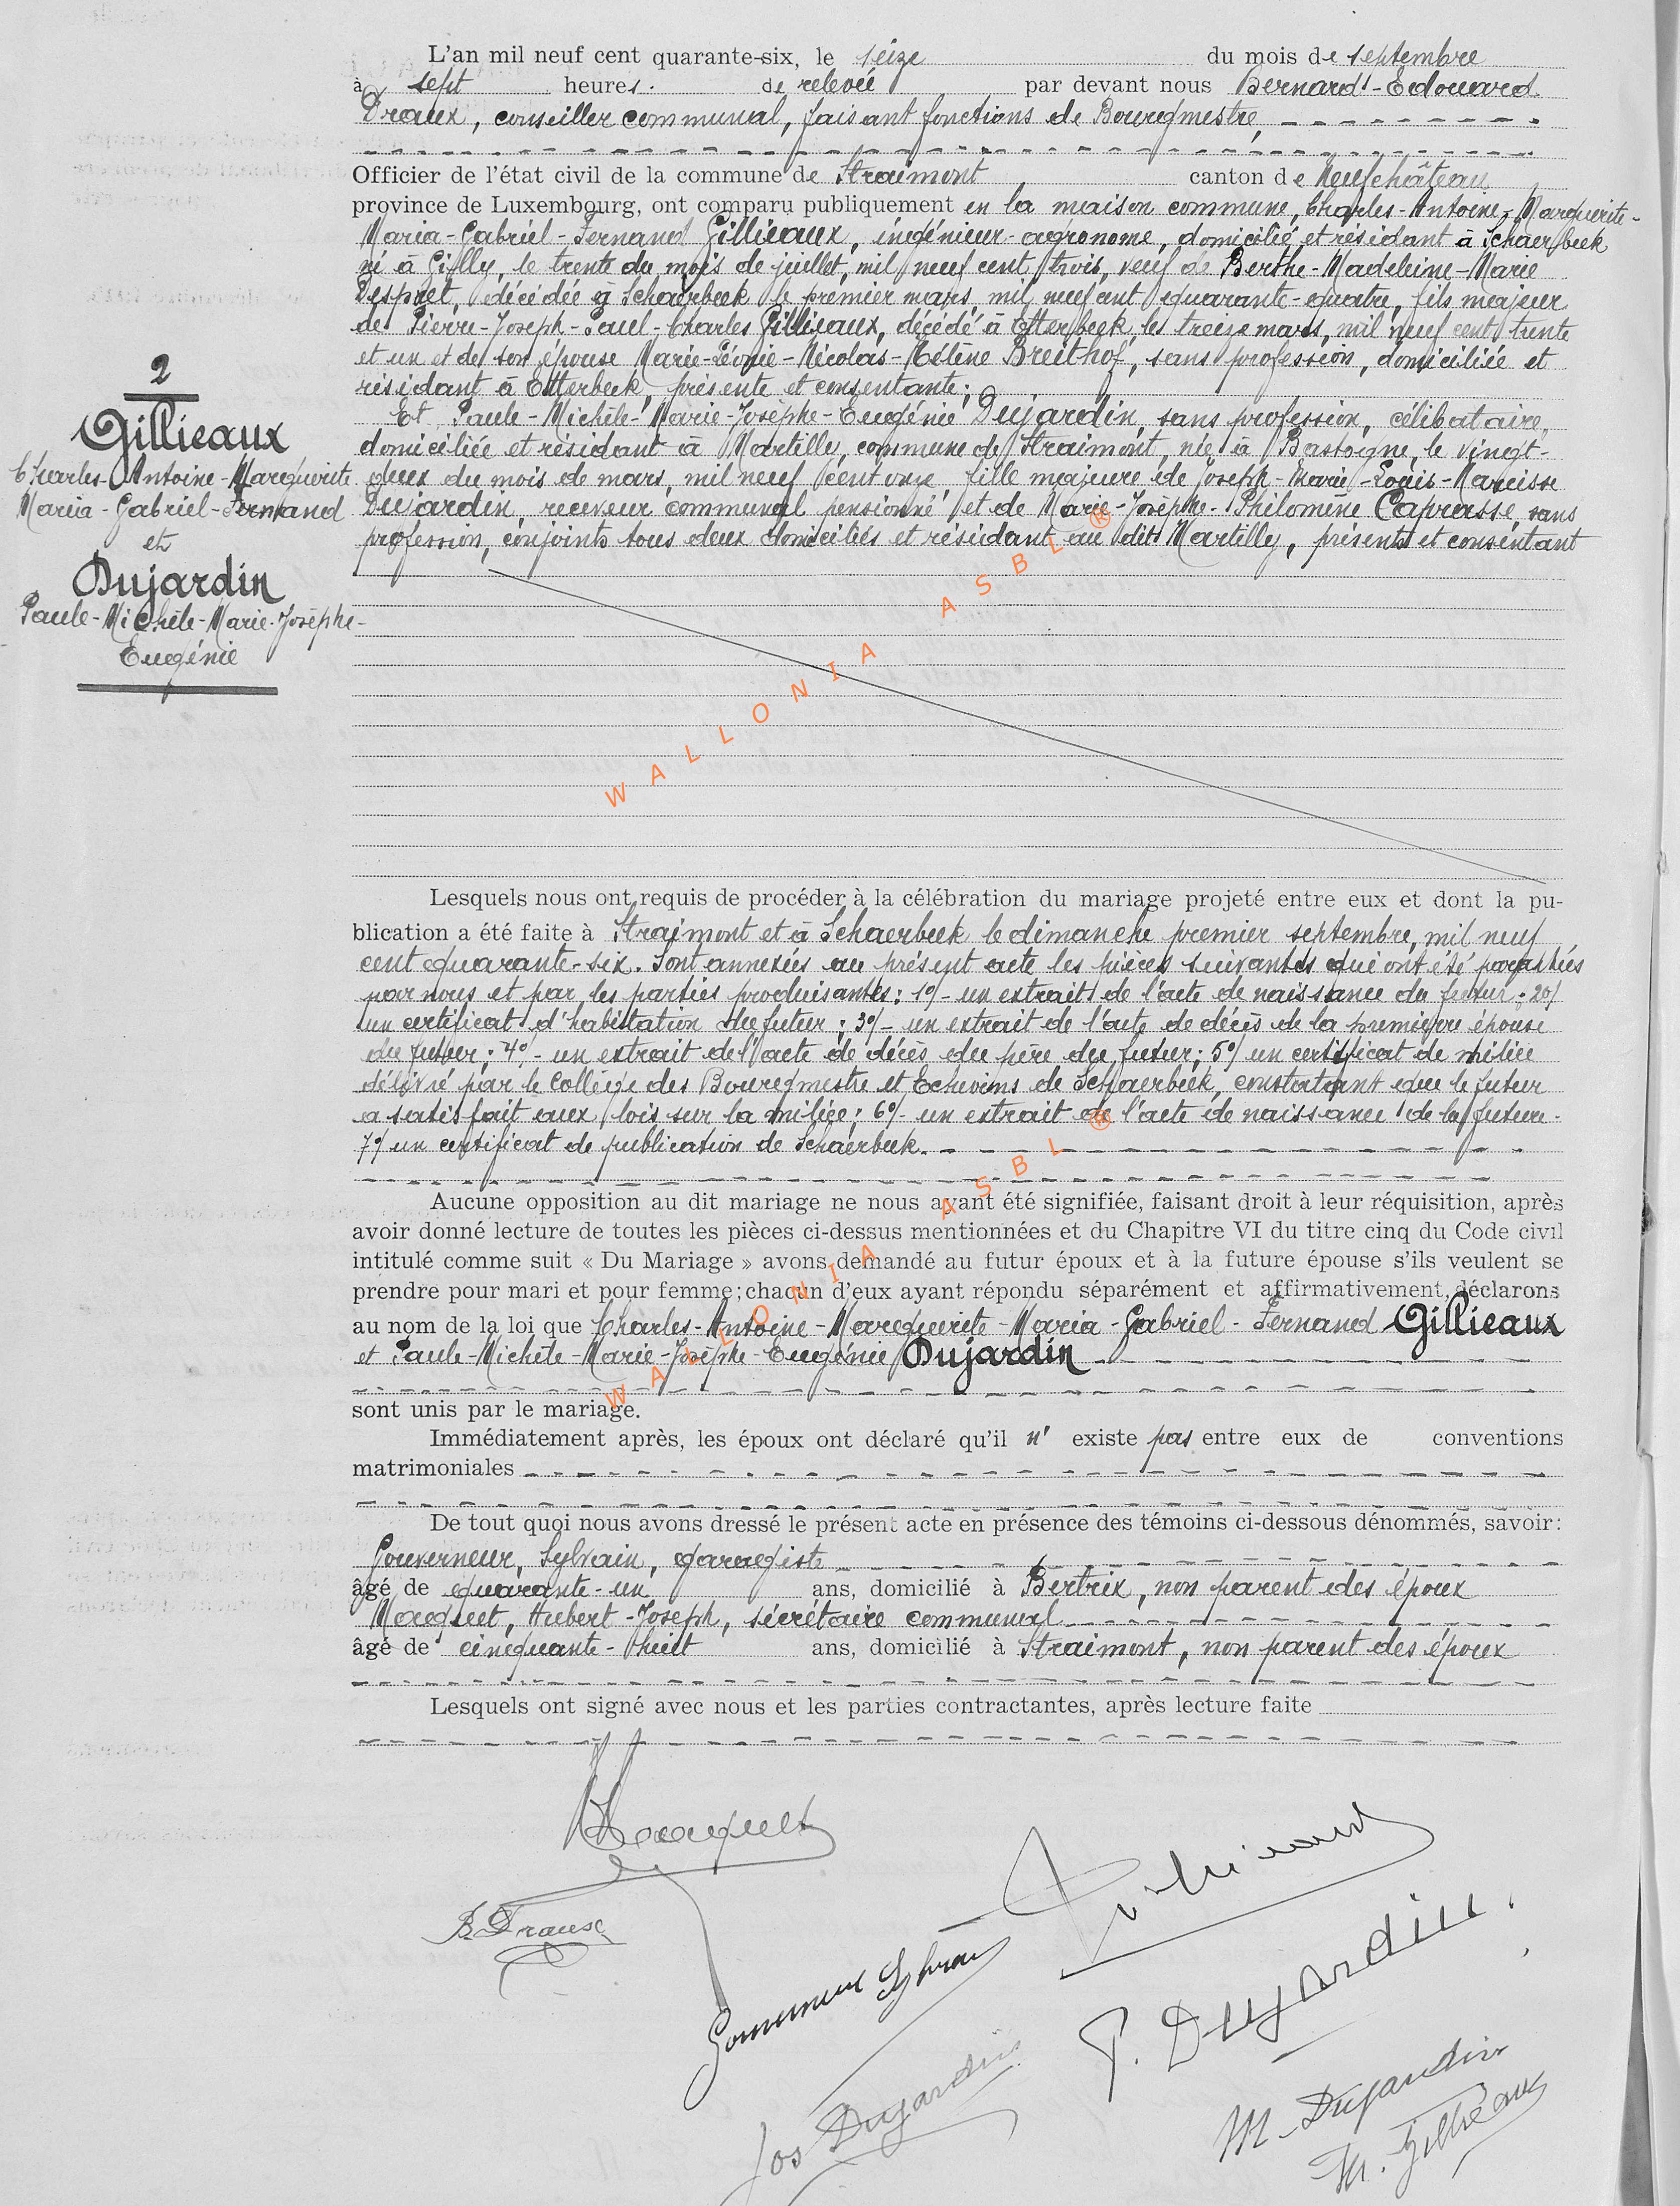 L'an mil neuf cent quarante-six, le seize du mois de septembre
à sept heures. de relevée par devant nous Bernard-Edouard
Draux, conseiller communal, faisant fonctions de Bourgmestre,
Officier de l'état civil de la commune de Straimont canton de Neufchâteau
province de Luxembourg, ont comparu publiquement en la maison commune, Charles-Antoine-Marguerite-
Maria-Gabriel-Fernand Gillieaux, ingénieur-agronome, domicilié et résidant à Schaerbeek
né à Gilly, le trente du mois de juillet, mil neuf cent trois, veuf de Berthe-Madeleine-Marie
Despret, décédée à Schaerbeek le premier mars, mil neuf cent quarante-quatre, fils majeur
de Pierre-Joseph-Paul-Charles Gillieaux, décédé à Etterbeek, le treize mars, mil neuf cent trente
et un et de son épouse Marie-Léonie-Nicolas-Hélène Breithof, sans profession, domiciliée et
résidant à Etterbeek, présente et consentante;
Et Paule-Michèle-Marie-Josèphe-Eugénie Dujardin, sans profession, célibataire,
domiciliée et résidant à Martilly, commune de Straimont, née à Bastogne, le vingt-
deux du mois de mars, mil neuf cent onze, fille majeure de Joseph-Marie-Louis-Narcisse
Dujardin, receveur communal pensionné et de Marie-Josèphe-Philomène Caprasse, sans
profession, conjoints tous deux domiciliés et résidant au dit Martilly, présents et consentant
2
Gillieaux
Charles-Antoine-Marguerite
Maria-Gabriel-Fernand
et
Dujardin
Paule-Michèle-Marie-Josèphe-
Eugénie
WALLONIA ASBL ®
Lesquels nous ont requis de procéder à la célébration du mariage projeté entre eux et dont la pu-
blication a été faite à Straimont et à Schaerbeek le dimanche premier septembre, mil neuf
cent quarante-six. Sont annexées au présent acte les pièces suivantes qui ont été paraphées
par nous et par les parties produisantes: 1°/- un extrait de l'acte de naissance du futur; 2°/
un certificat d'habitation du futur; 3°/- un extrait de l'acte de décès de la première épouse
du futur; 4°- un extrait de l'acte de décès du père du futur; 5°/ un certificat de milice
délivré par le Collège des Bourgmestre et Echevins de Schaerbeek, constatant que le futur
a satisfait aux lois sur la milice; 6°/- un extrait de l'acte de naissance de la future-
7°/ un certificat de publication de Schaerbeek.
Aucune opposition au dit mariage ne nous ayant été signifiée, faisant droit à leur réquisition, après
avoir donné lecture de toutes les pièces ci-dessus mentionnées et du Chapitre VI du titre cinq du Code civil
intitulé comme suit « Du Mariage » avons demandé au futur époux et à la future épouse s'ils veulent se
prendre pour mari et pour femme; chacun d'eux ayant répondu séparément et affirmativement, déclarons
au nom de la loi que Charles-Antoine-Marguerite-Maria-Gabriel-Fernand Gillieaux
et Paule-Michèle-Marie-Josèphe-Eugénie Dujardin
WALLONIA ASBL ®
sont unis par le mariage.
Immédiatement après, les époux ont déclaré qu'il n' existe pas entre eux de conventions
matrimoniales
De tout quoi nous avons dressé le présent acte en présence des témoins ci-dessous dénommés, savoir:
Gouverneur, Sylvain, garagiste
âgé de quarante-un ans, domicilié à Bertrix, non parent des époux
Maquet, Hubert-Joseph, secrétaire communal
âgé de cinquante-huit ans, domicilié à Straimont, non parent des époux
Lesquels ont signé avec nous et les parties contractantes, après lecture faite
Gouverneur Sylvain
P. Dujardin
Jos Dujardin
M. Dujardin
M. Gillieaux